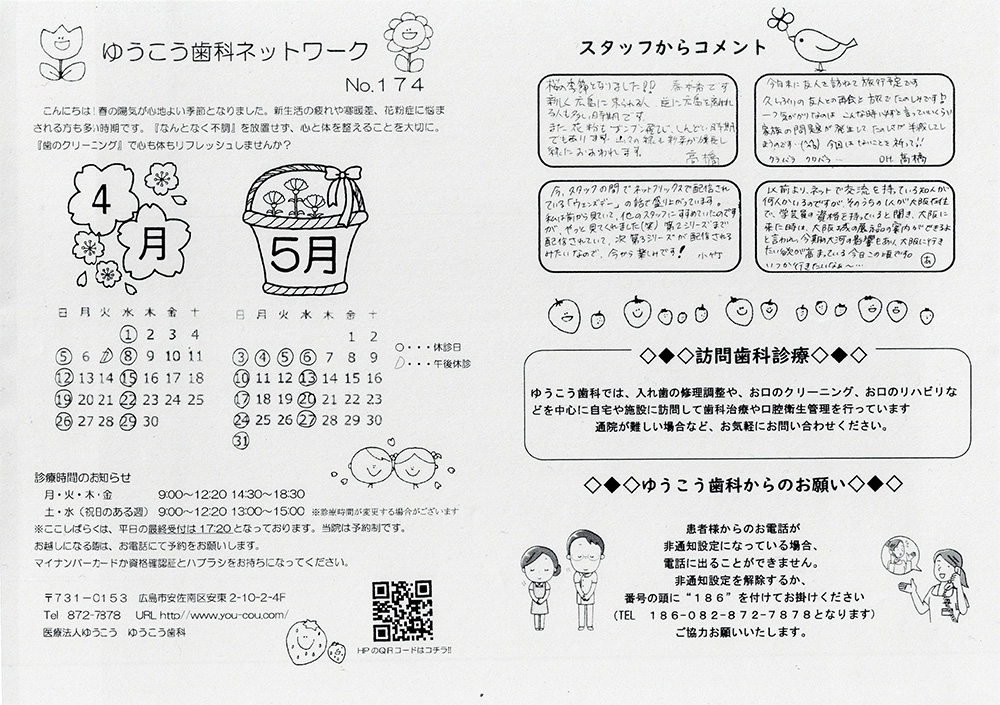 ゆうこう歯科ネットワーク
No.174
こんにちは!春の陽気が心地よい季節となりました。新生活の疲れや寒暖差、花粉症に悩ま
される方も多い時期です。『なんとなく不調』を放置せず、心と体を整えることを大切に。
『歯のクリーニング』で心も体もリフレッシュしませんか?
4
月
5月
日 月 火 水 木 金 土
1 2 3 4
5 6 7 8 9 10 11
12 13 14 15 16 17 18
19 20 21 22 23 24 25
26 27 28 29 30
日 月 火 水 木 金 土
1 2
3 4 5 6 7 8 9
10 11 12 13 14 15 16
17 18 19 20 21 22 23
24 25 26 27 28 29 30
31
○・・・休診日
・・・午後休診
診療時間のお知らせ
月・火・木・金 9:00~12:20 14:30~18:30
土・水(祝日のある週) 9:00~12:20 13:00~15:00 ※診療時間が変更する場合がございます
※ここしばらくは、平日の最終受付は17:20となっております。当院は予約制です。
お越しになる際は、お電話にて予約をお願いします。
マイナンバーカードか資格確認証とハブラシをお持ちになってください。
〒731-0153 広島市安佐南区安東2-10-2-4F
Tel 872-7878 URL http//www.you-cou.com/
医療法人ゆうこう ゆうこう歯科
HPのQRコードはコチラ!!
スタッフからコメント
桜の季節となりました!!
新しく広島に来られる人 逆に広島を離れ
る人も多い時期です。
また花粉もブンブン飛び、しんどい時期
でもあります。
高橋
今年末に友人を訪ねて旅行予定です
久しぶりの友人との再会と旅でたのしみです♪
一つ気がかりなのは こんな時必ずと言っていいくらい
家族の問題が発生して
今回はないことを祈って!!
クワバラ クワバラ… DH. 高橋
今、スタッフの間でネットフリックスで配信され
ている「ウェンズデー」の話で盛り上がっています。
私は前から見ていて、他のスタッフにすすめていたのです
が、やっと見てくれました(笑) 第2シリーズまで
配信されていて、次第3シリーズが配信される
みたいなので、今から楽しみです! 小竹
以前より、ネットで交流を持っている知人が
何人かいるのですが、そのうちの1人が大阪在住
で、学芸員の資格を持っていると聞き、大阪に
来た時は、大阪城の展示品の案内ができるよ
と言われ、今期の大河の影響もあり、大阪に行き
たい欲が高まっている今日この頃です
いつか行きたいなぁ~… あ
◇◆◇訪問歯科診療◇◆◇
ゆうこう歯科では、入れ歯の修理調整や、お口のクリーニング、お口のリハビリな
どを中心に自宅や施設に訪問して歯科治療や口腔衛生管理を行っています
通院が難しい場合など、お気軽にお問い合わせください。
◇◆◇ゆうこう歯科からのお願い◇◆◇
患者様からのお電話が
非通知設定になっている場合、
電話に出ることができません。
非通知設定を解除するか、
番号の頭に“186”を付けてお掛けください
(TEL 186-082-872-7878となります)
ご協力お願いいたします。